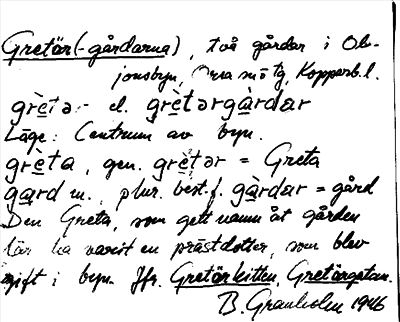 Gretär(-gårdarna), två gårdar i Ol-
jonsbyn, Orsa sn o tg, Kopparb.l.
grètǝr- el. grètǝrgàrdar
Läge: Centrum av byn.
grèta, gen. grètǝr = Greta
gard m., plur. best. f. gàrdar = gård
Den Greta, som gett namn åt gården
lär ha varit en prästdotter, som blev
gift i byn. Jfr. Gretärkitten, Gretärgatan.
B. Granholm 1946